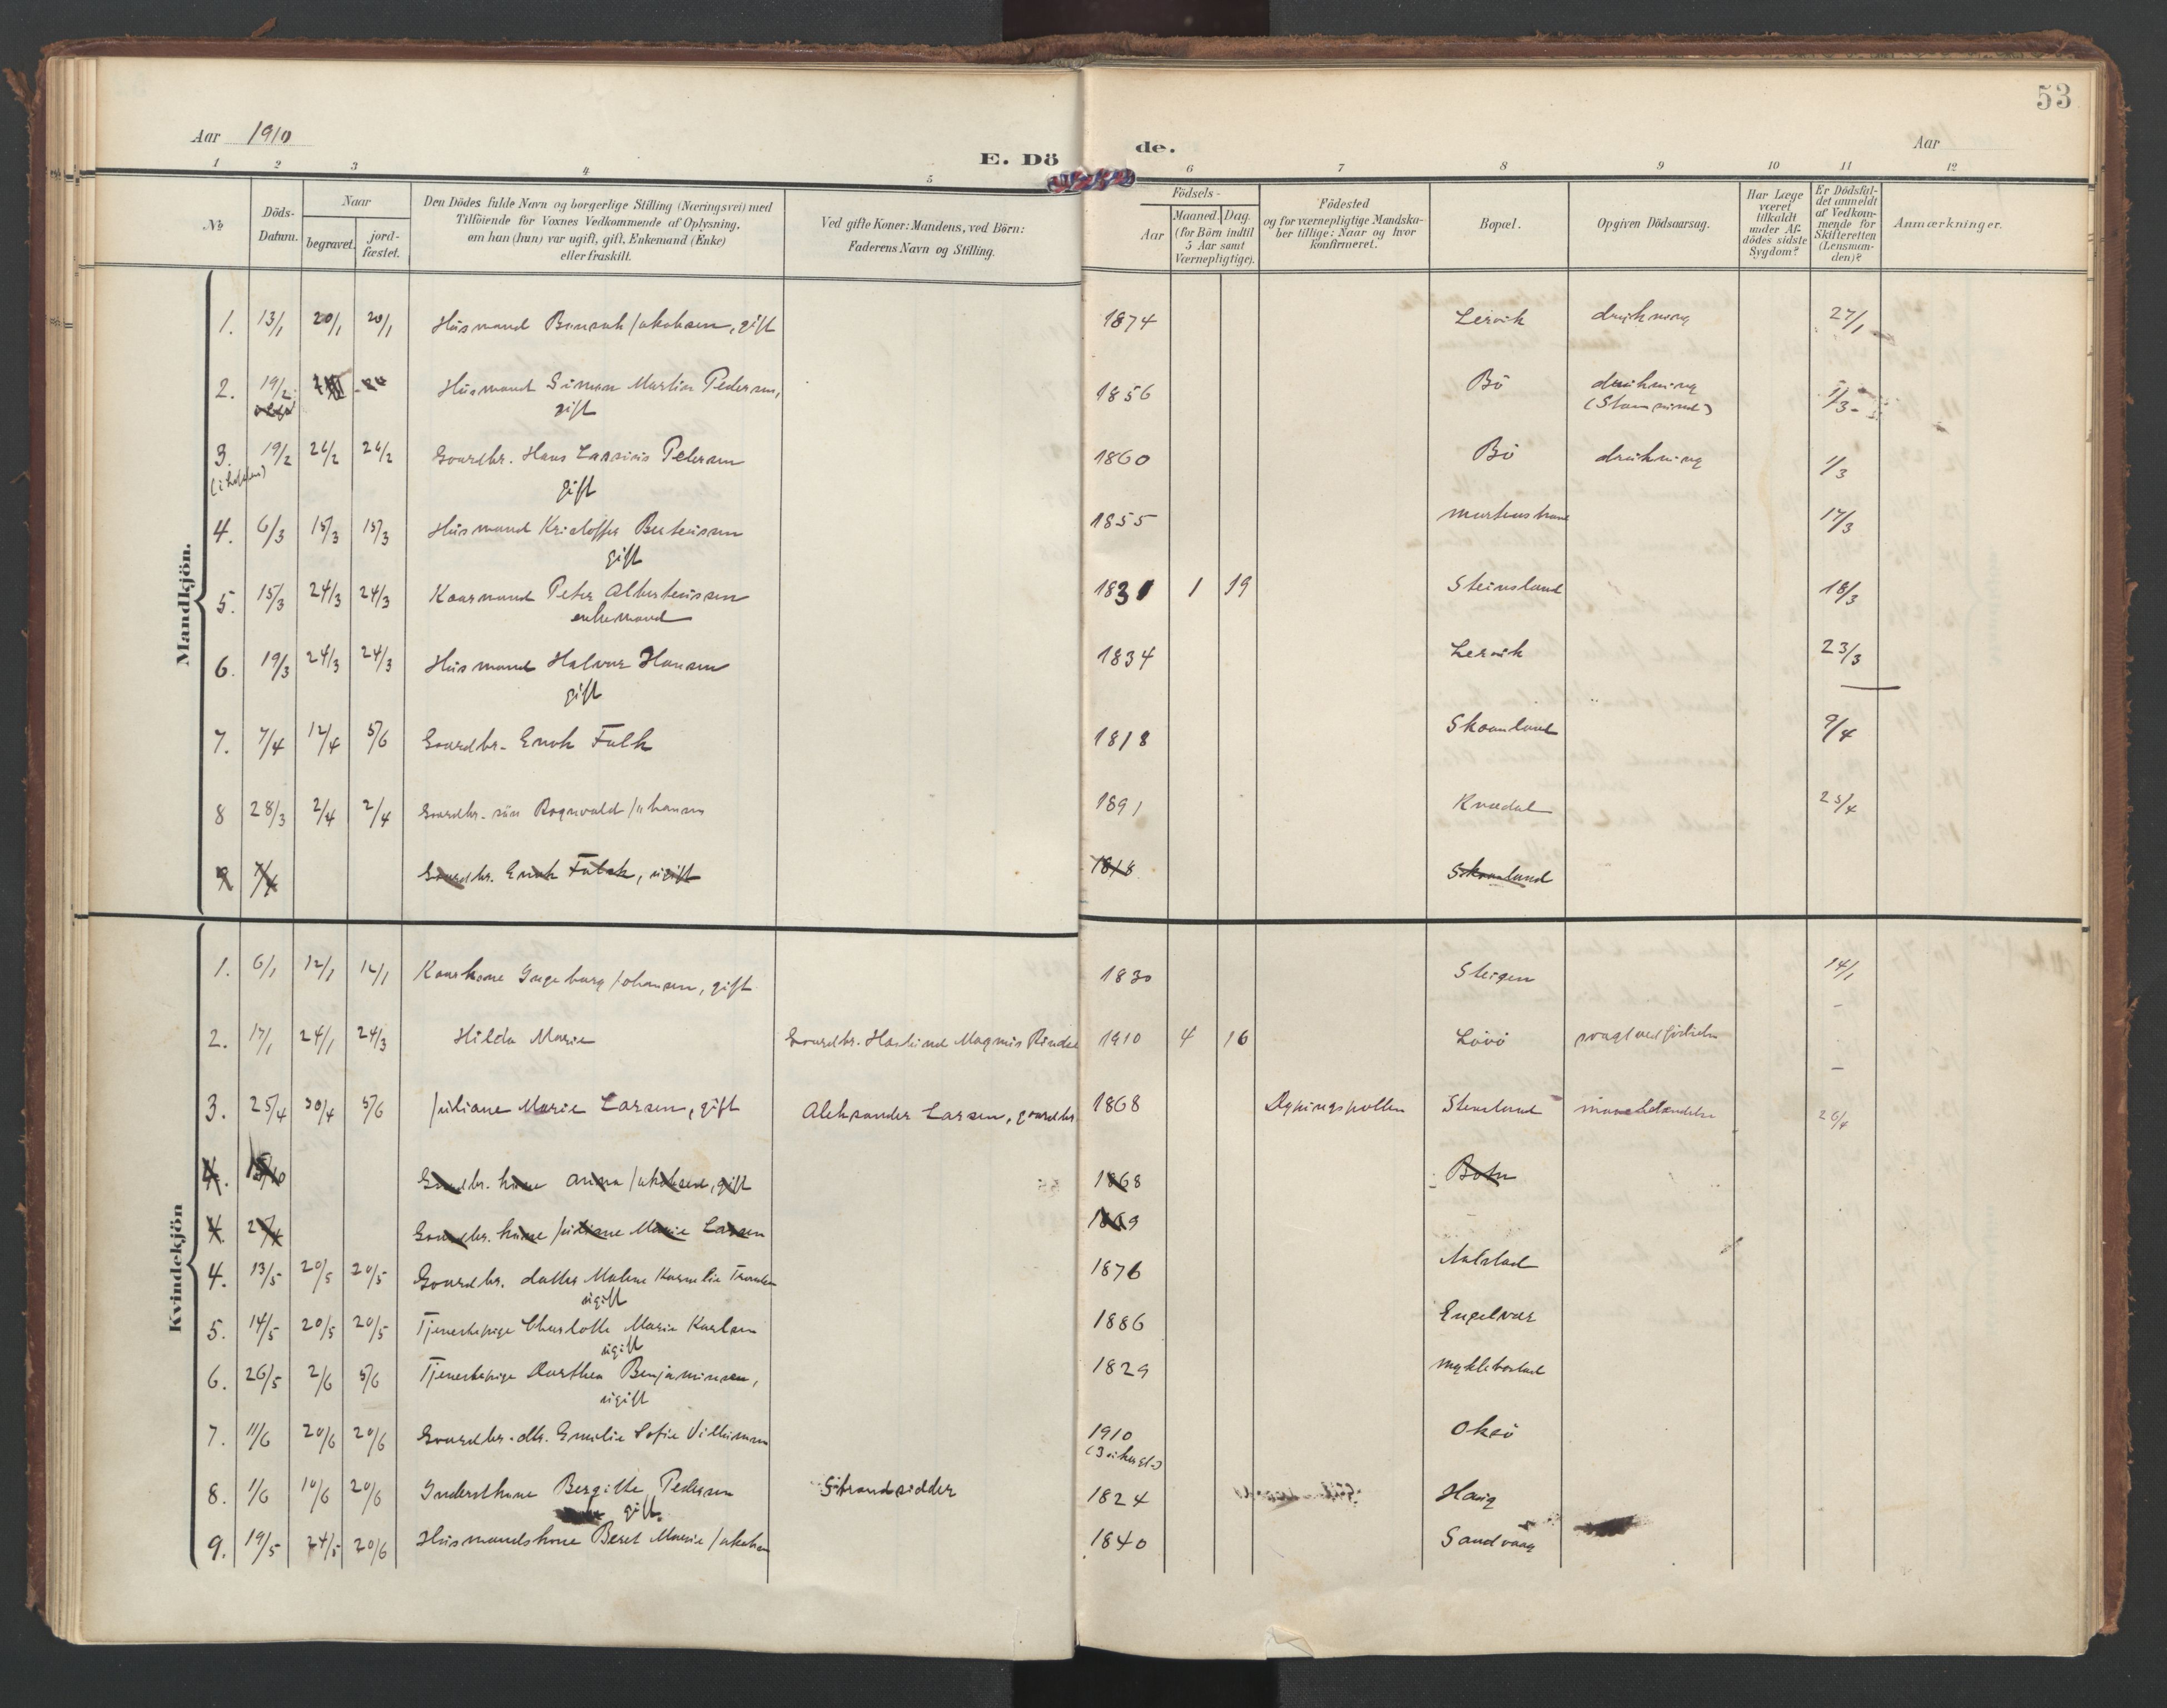 53
Aar 1910
Aar
E. Döde.
1 2 3 4 5 6 7 8 9 10 11 12
No.
Döds-Datum.
Naar
begravet.
jord-fæstet.
Den Dödes fulde Navn og borgerlige Stilling (Næringsvei) med
Tilföiende for Voxnes Vedkommende af Oplysning,
om han (hun) var ugift, gift, Enkemand (Enke)
eller fraskilt.
Ved gifte Koner: Mandens, ved Börn:
Faderens Navn og Stilling.
Födsels-
Aar
Maaned. Dag.
(for Börn indtil
5 Aar samt
Værnepligtige).
Födested
og for værnepligtige Mandska-
ber tillige: Naar og hvor
konfirmeret.
Bopæl.
Opgiven Dödsaarsag.
Har Læge
været
tilkaldt
under Af-
dödes sidste
Sygdom?
Er Dödsfal-
det anmeldt
af Vedkom-
mende for
Skifteretten
(Lensman-
den)?
Anmærkninger.
Mandkjön.
1. 13/1 20/1 20/1 Husmand Jakobsen, gift 1874 Lervik drukning 27/1
2. 19/2 Husmand Simon Martin Pedersen, 1856 Bö drukning 1/3
gift
3. 19/2 26/2 26/2 Gaardbr. Hans Lassinis Petersen 1860 Bö drukning 1/3
gift
4. 6/3 15/3 15/3 Husmand Kristoffer Berteussen 1855 17/3
gift
5. 15/3 24/3 24/3 Kaarmand Peter Alberteussen 1831 1 19 Steinsland 18/3
enkemand
6. 19/3 24/3 24/3 Husmand Halvor Hansen 1834 Lervik 23/3
gift
7. 7/4 12/4 5/6 Gaardbr. Enok Falk 1818 Skaanland 9/4
8 28/3 2/4 2/4 Gaardbr. sön Ragnvald Johansen 1891 25/4
Gaardbr. Enok Falch, ugift 1818 Skaanland
Kvindekjön
1. 6/1 12/1 12/1 Kaarkone Ingeborg Johansen, gift 1830 Steigen 14/1
2. 17/1 24/1 24/3 Hilda Marie Gaardbr. Magnus 1910 4 16 Lövö
3. 25/4 30/4 5/6 Juliane Marie Larsen, gift Aleksander Larsen, gaardbr. 1868 Stensland 26/4
4. Gaardbr. kone Anna Jakobsen, gift 1868 Botn
4. Gaardbr. kone Juliane Marie Larsen 1869
4. 13/5 20/5 20/5 Gaardbr. datter Malene Kornelie 1876 Aalstad
ugift
5. 14/5 20/5 20/5 Tjenestepige Charlotte Marie Karlsen 1886 Engelvær
ugift
6. 26/5 2/6 5/6 Tjenestepige Dorthea Benjaminsen, 1829 Myklebostad
ugift
7. 11/6 20/6 20/6 Gaardbr. dtr. Emilie Sofie 1910 Oksö
8. 1/6 10/6 20/6 Inderstkone Bergitte Pedersen Strandsidder 1824 Haug
gift
9. 19/5 24/5 20/6 Husmandskone Beret Marie 1840 Sandvaag